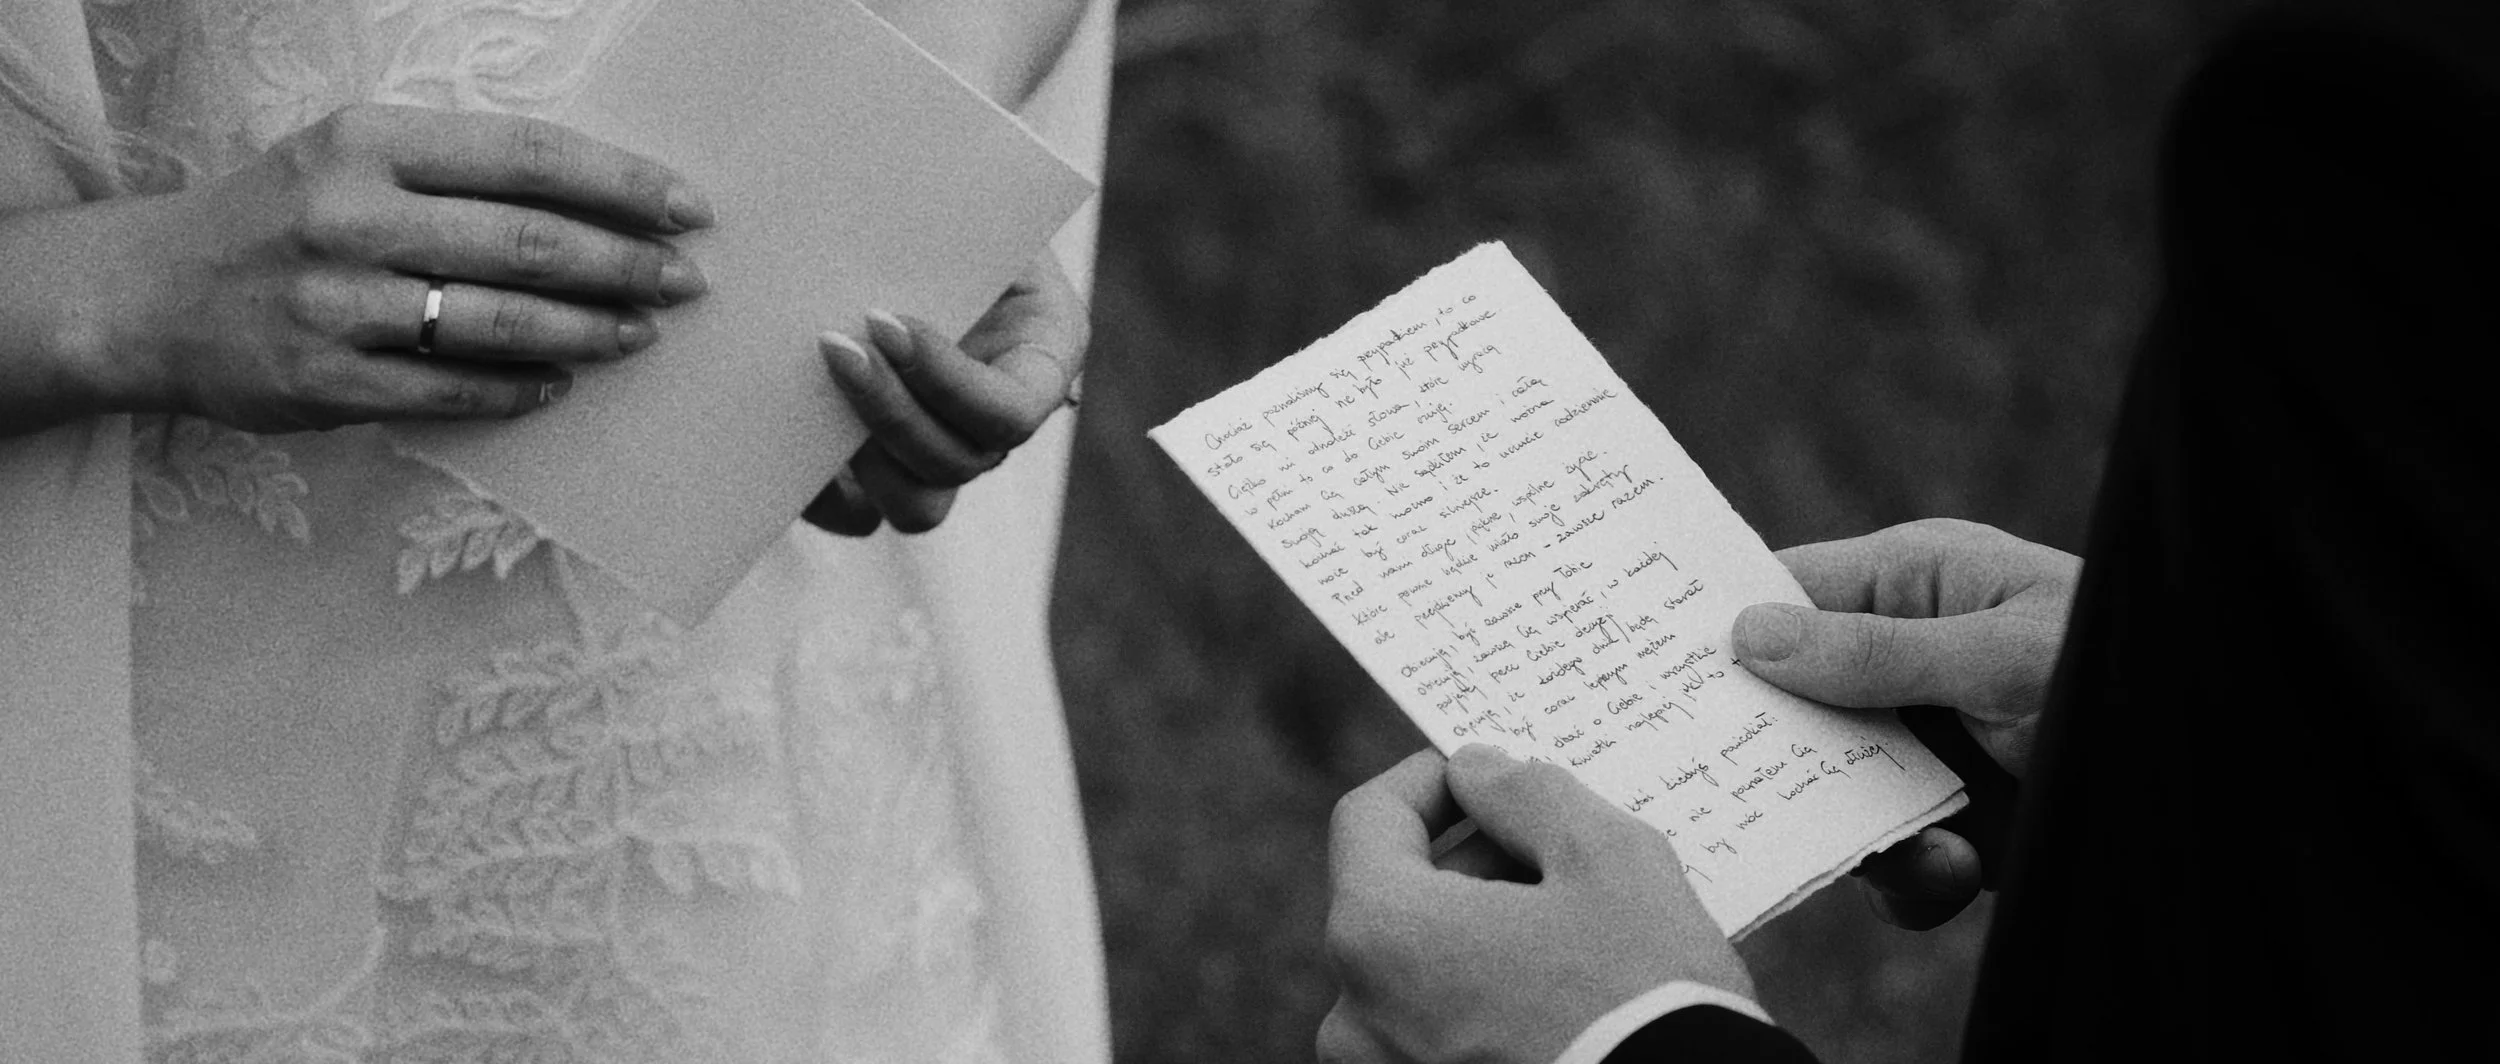 Chociaż poznaliśmy się przypadkiem, to co
stało się później nie było już przypadkowe.
Ciężko mi odnaleźć słowa, które wyrażą
w pełni to co do Ciebie czuję.
Kocham Cię całym swoim sercem i całą
swoją duszą. Nie sądziłem, że można
kochać tak mocno i że to uczucie codziennie
może być coraz silniejsze.
Przed nami długie, piękne, wspólne życie.
Które pewnie będzie miało swoje zakręty
ale przejdziemy je razem - zawsze razem.
Obiecuję, być zawsze przy Tobie
obiecuję, zawsze Cię wspierać, w każdej
podjętej przez Ciebie decyzji
Obiecuję, że każdego dnia, będę starał
być coraz lepszym mężem
dbać o Ciebie i wszystkie
kwiatki najlepiej jak to
ktoś kiedyś powiedział:
nie poznałem Cię
by móc kochać Cię dłużej.